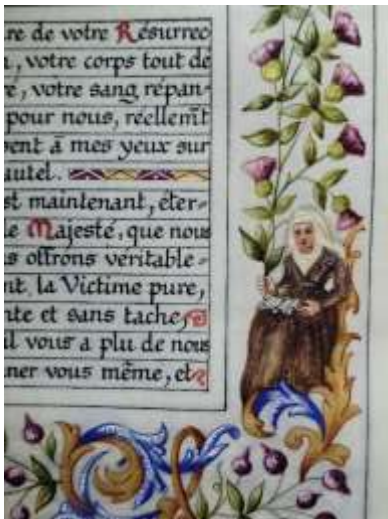 re de votre Résurrec
, votre corps tout dé
re, votre sang répan-
pour nous, réellem̄t
ent ā mes yeux sur
autel.
st maintenant, éter-
le Majesté, que nous
s offrons véritable-
nt, la Victime pure,
nte et sans tache,
il vous a plu de nous
ner vous même, et